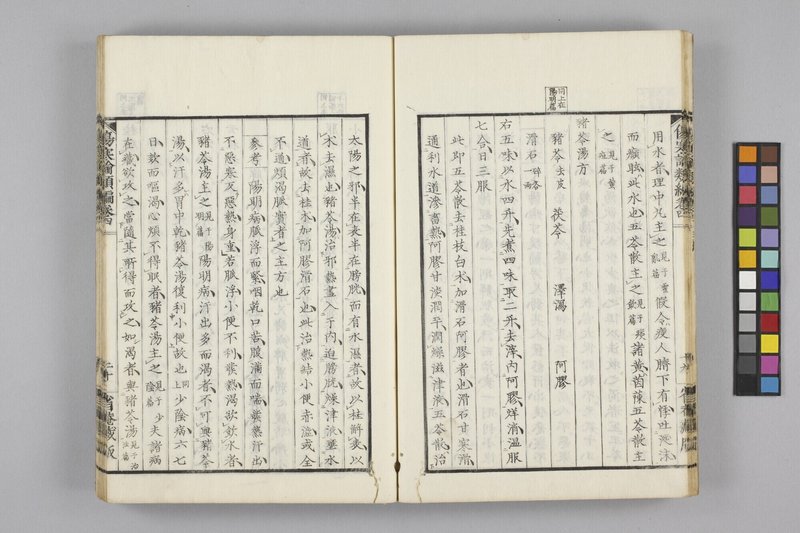 用水者理中丸主之見于霍乱篇假令瘦人臍下有悸吐涎沫
而癲眩此水也五苓散主之見于痰飲篇諸黄茵蔯五苓散主
之見于黄疸篇
豬苓湯方
豬苓去皮 茯苓 澤瀉 阿膠
滑石碎各一兩
右五味以水四升先煮四味取二升去滓内阿膠烊消温服
七合日三服
此即五苓散去桂枝白朮加滑石阿膠者也滑石甘寒滑
通利水道滲畜熱阿膠甘淡潤平潤燥滋津液五苓散治
同上在陽明篇
太陽之邪半在表半在膀胱而有水濕者故以桂解表以
朮去濕也豬苓湯治邪熱盡入于内迫膀胱燥津液畜水
道者故去桂朮加阿膠滑石也此治熱結小便赤澁或全
不通煩渴脈實者之主方也
參考 陽明病脈浮而緊咽乾口苦腹滿而喘發熱汗出
不惡寒反惡熱身重若脈浮小便不利發熱渴欲飲水者
豬苓湯主之見于陽明篇陽明病汗出多而渴者不可與豬苓
湯以汗多胃中乾豬苓湯復利小便故也同上少陰病六七
日欬而嘔渴心煩不得眠者豬苓湯主之見于少陰篇夫諸病
在藏欲攻之當隨其所得而攻之如渴者與豬苓湯見于
傷寒論類編卷四